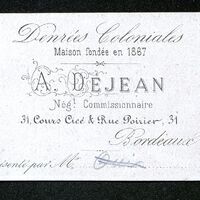 Denrées Coloniales
Maison fondée en 1867
A. DEJEAN
Négt. Commissionnaire
31, Cours Cicé & Rue Poirier, 31
Bordeaux
ésenté par Mr.